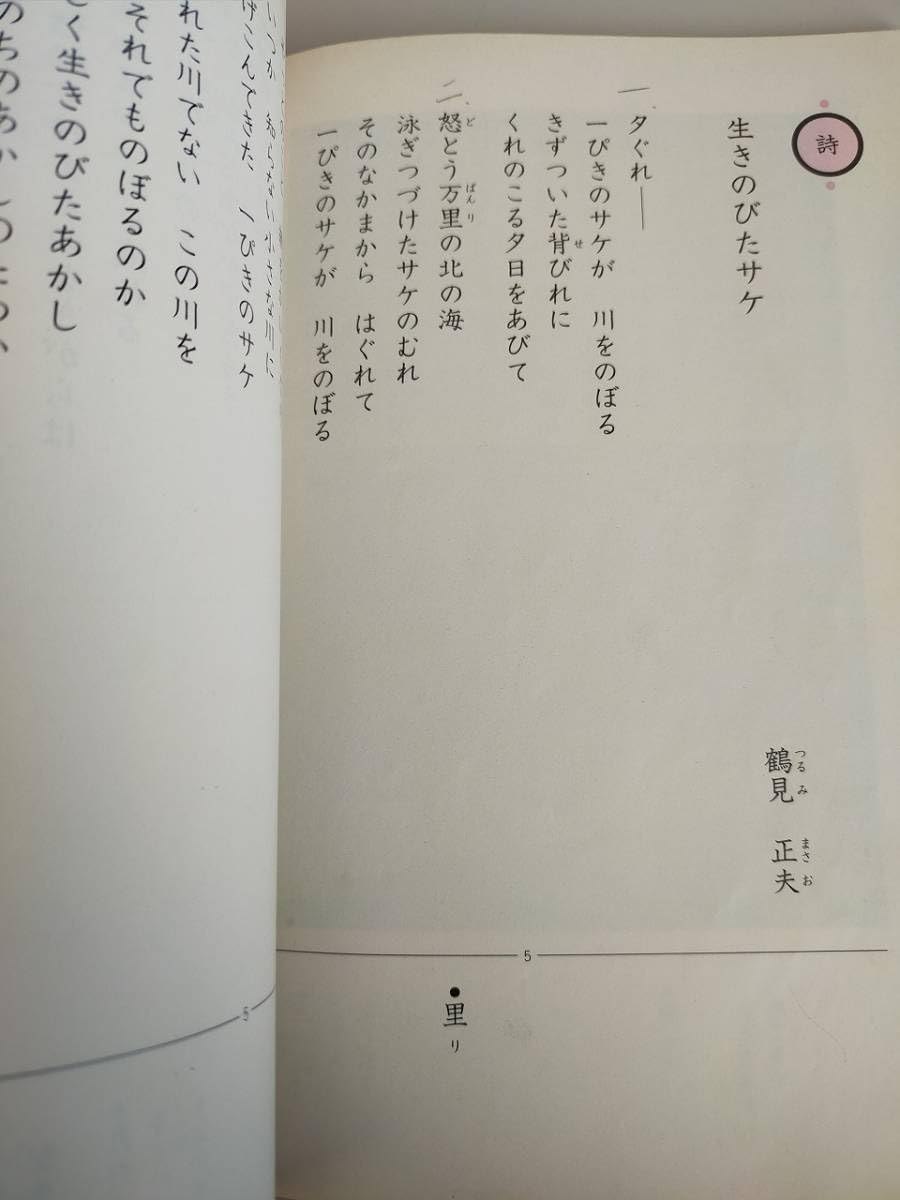 詩
生きのびたサケ
鶴見 正夫
つるみ まさお
一
夕ぐれ――
一ぴきのサケが 川をのぼる
きずついた背びれに
せ
くれのこる夕日をあびて
二
怒とう万里の北の海
ど ばんり
泳ぎつづけたサケのむれ
そのなかまから はぐれて
一ぴきのサケが 川をのぼる
5
里
リ
いつか 知らない小さな川に
げこんできた 一ぴきのサケ
れた川でない この川を
それでものぼるのか
く生きのびたあかし
5